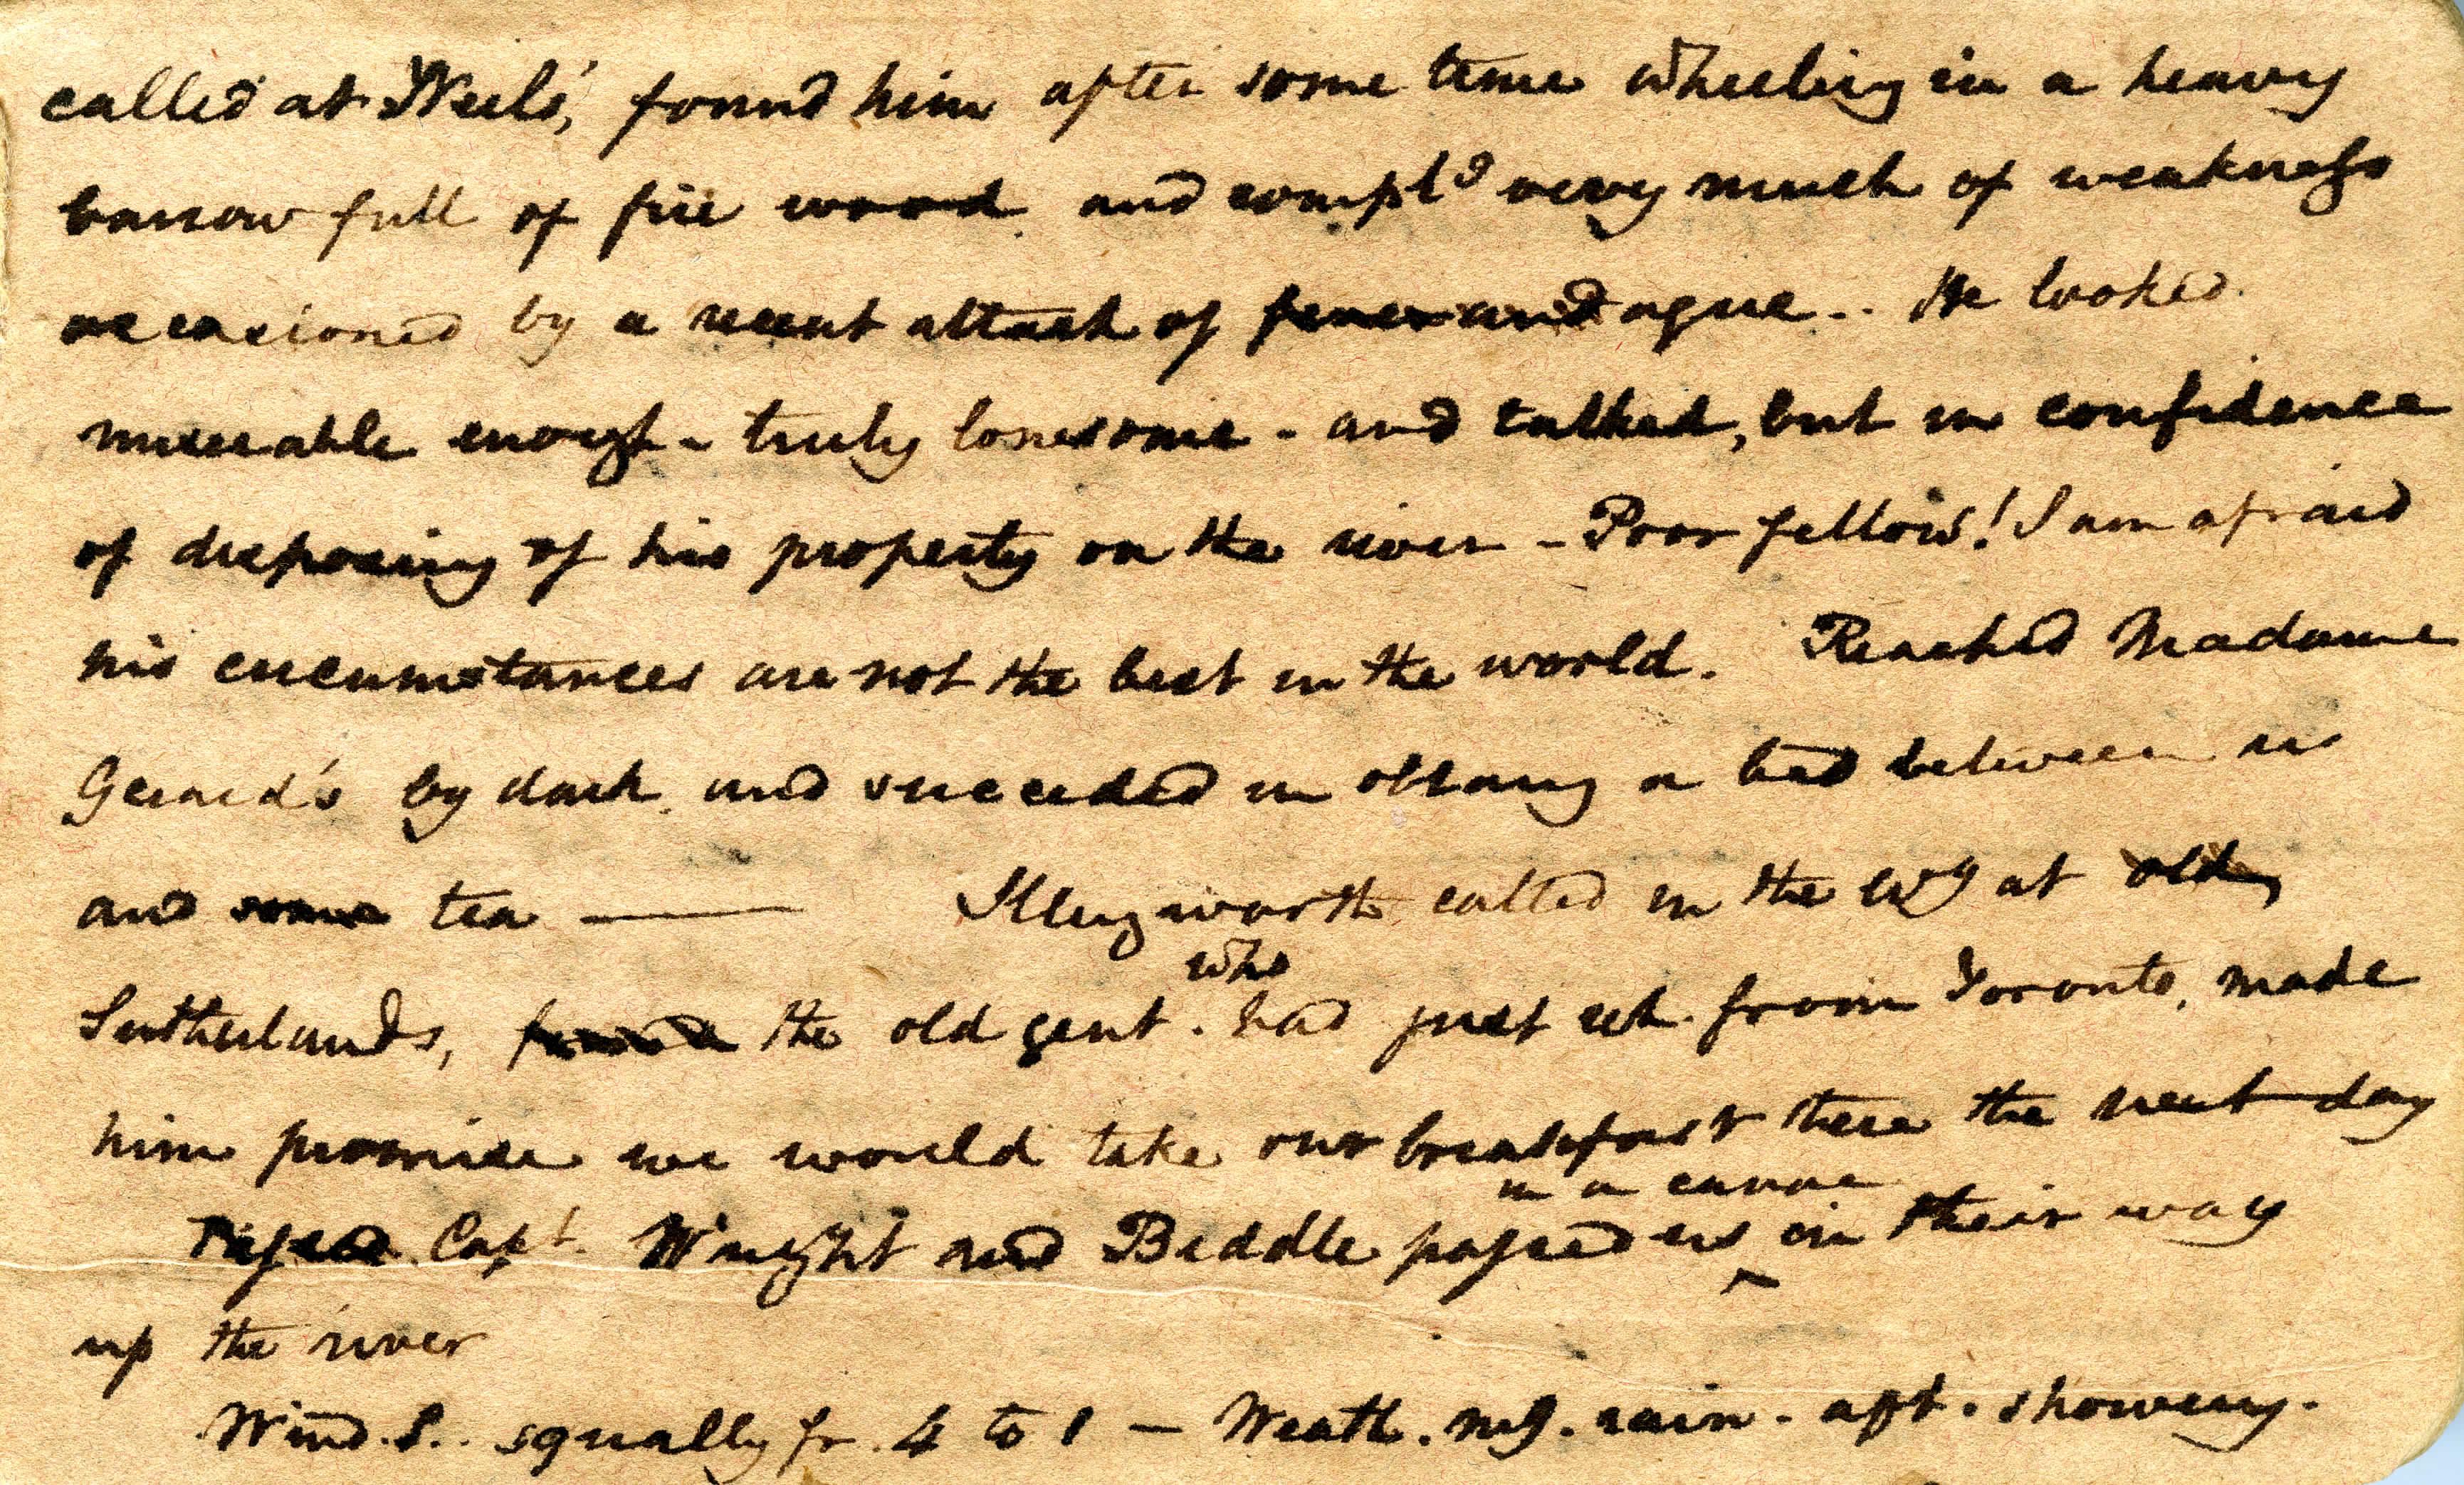 called at Neels', found him after some time wheeling in a heavy
barrow full of fire wood and compl^d very much of weakness
occasioned by a recent attack of fever and ague.. He looked
miserable enough - truly lonesome - and talked, but in confidence
of disposing of his property on the river - Poor fellow! I am afraid
his circumstances are not the best in the world. Reached Madame
Gerard's by dark and succeeded in obtang a bed between us
and some tea —— Illengworth called in the ev^g at old
who
Sutherlands, found the old gent. had just ret. from Toronto, made
him promise we would take our breakfast there the next day
in a canoe
Capt. Wright and Beddle passed us ^ on their way
up the river
Wind. S.. squally fr. 4 to 1 — Weath. mg. rain. aft. showery.